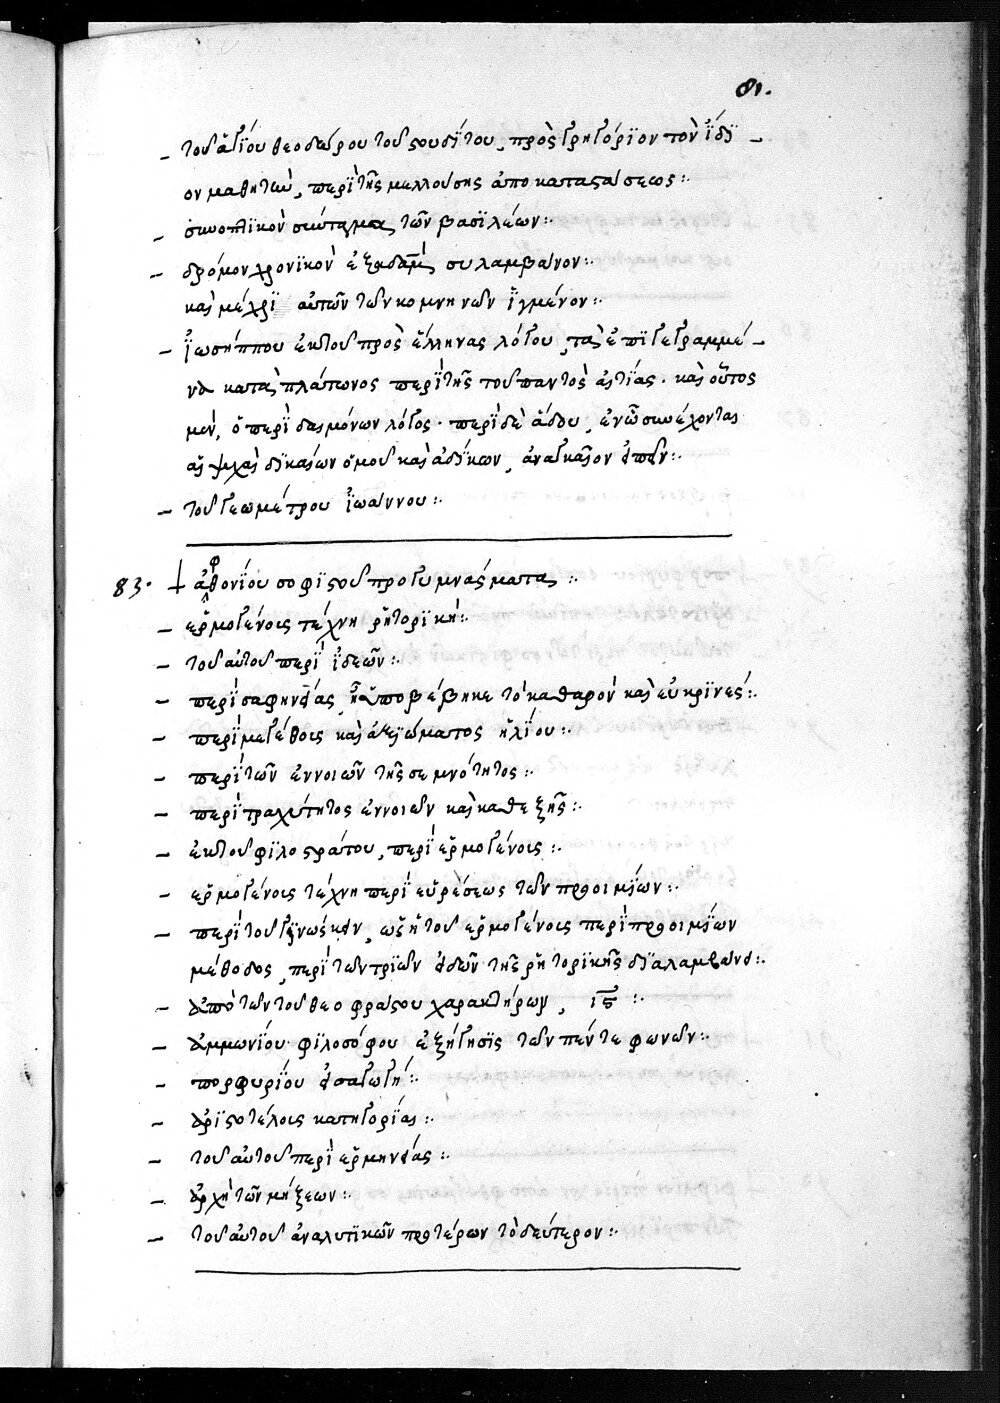 81.
– τοῦ ἁγίου θεοδώρου τοῦ στουδίτου, πρὸς γρηγόριον τὸν ἴδι –
ον μαθητὴν, περὶ τῆς μελλούσης ἀποκαταστάσεως:
– συνοπτικὸν σύνταγμα τῶν βασιλέων:
– δρόμον χρονικὸν ἐξ ἀδὰμ συλαμβάνον:
καὶ μέχρι αὐτῶν τῶν κομνηνῶν ἠγμένον:
– ἰωσήππου ἐκ τοῦ πρὸς ἕλληνας λόγου, τὰ ἐπιγεγραμμέ –
να κατὰ πλάτωνος περὶ τῆς τοῦ παντὸς αἰτίας. καὶ οὗτος
μὲν, ὁ περὶ δαιμόνων λόγος. περὶ δὲ ἅδου, ἐν ᾧ συνέχονται
αἱ ψυχαὶ δικαίων ὁμοῦ καὶ ἀδίκων, ἀναγκαῖον εἰπεῖν:
– τοῦ γεωμέτρου ἰωάννου:
83. ἀφθονίου σοφιστοῦ προγυμνάσματα:
– ἑρμογένοις τέχνη ῥητορικὴ:
– τοῦ αὐτοῦ περὶ ἰδεῶν:
– περὶ σαφηνείας, ᾗ ὑποβέβηκε τὸ καθαρὸν καὶ εὐκρινές:
– περὶ μεγέθοις καὶ ἀξιώματος ἡλίου:
– περὶ τῶν ἐννοιῶν τῆς σεμνότητος:
– περὶ τραχύτητος ἐννοιῶν καὶ καθεξῆς:
– ἐκ τοῦ φιλοστράτου, περὶ ἑρμογένοις:
– ἑρμογένοις τέχνη περὶ εὑρέσεως τῶν προοιμίων:
– περὶ τοῦ γινώσκειν, ὡς ἡ τοῦ ἑρμογένοις περὶ προοιμίων
μέθοδος, περὶ τῶν τριῶν εἰδῶν τῆς ῥητορικῆς διαλαμβάνει:
– ἀπὸ τῶν τοῦ θεοφράστου χαρακτήρων, ιϛ:
– ἀμμωνίου φιλοσόφου ἐξήγησις τῶν πέντε φωνῶν:
– πορφυρίου εἰσαγωγή:
– ἀριστοτέλοις κατηγορίαι:
– τοῦ αὐτοῦ περὶ ἑρμηνείας:
– ἀρχὴ τῶν μήξεων:
– τοῦ αὐτοῦ ἀναλυτικῶν προτέρων τὸ δεύτερον: